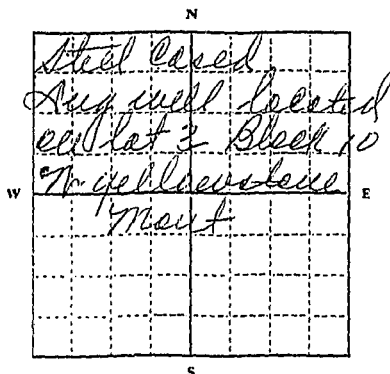 N
Steel Cased
Dug well located
on lot 2 Block 10
W yellowstone
W E
Mont
S